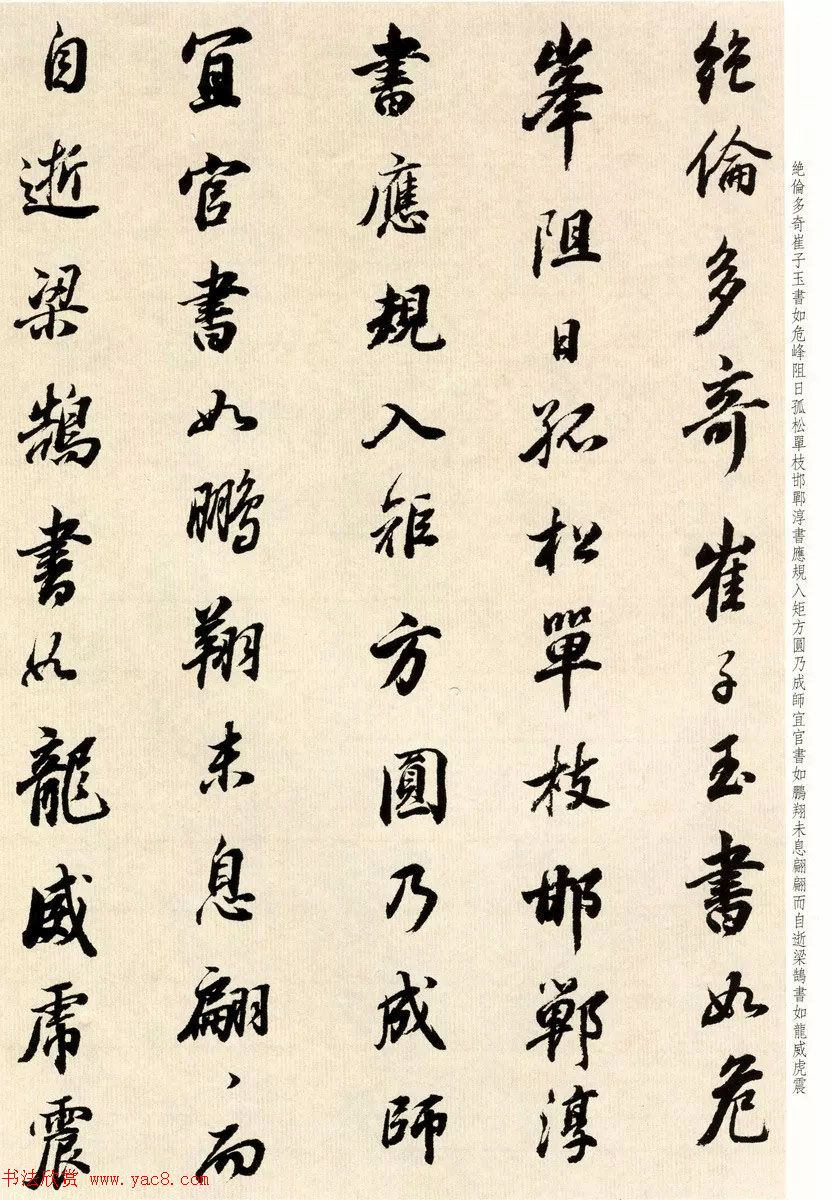 絶倫多奇崔子玉書如危
峯阻日孤松單枝邯鄲淳
書應規入矩方圓乃成師
宜官書如鵬翔未息翩丶而
自逝梁鵠書如龍威虎震
絶倫多奇崔子玉書如危峰阻日孤松單枝邯鄲淳書應規入矩方圓乃成師宜官書如鵬翔未息翩翩而自逝梁鵠書如龍威虎震
书法欣赏 www.yac8.com